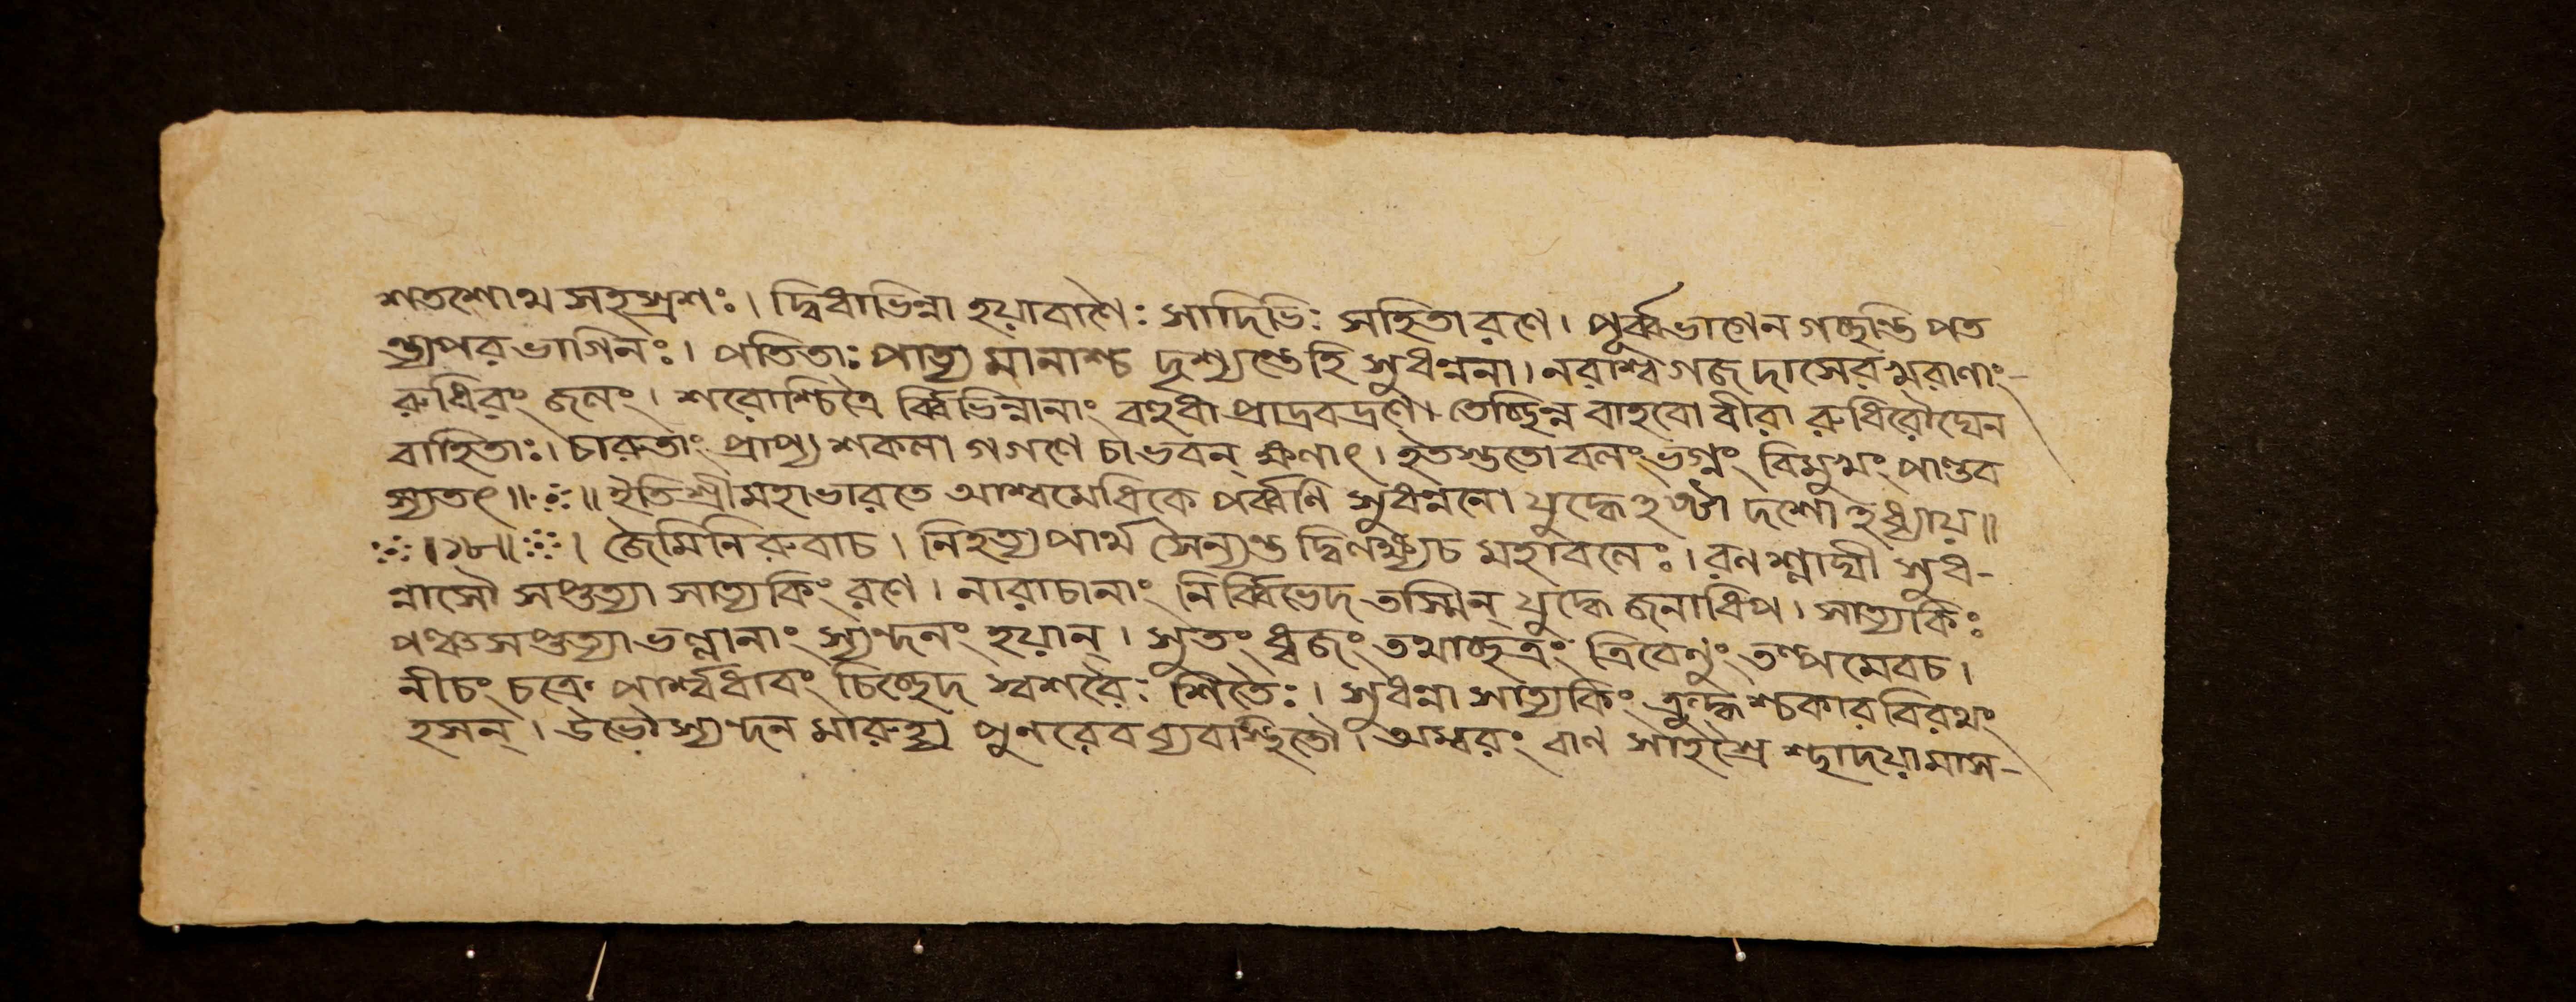 শতশোথ সহস্রশঃ। দ্বিধাভিন্না হয়াবাণৈঃ সাদিভিঃ সহিতা রণে। পূর্ব্বভাগেন গচ্ছন্তি পত
ন্ত্যপর ভাগিনঃ। পতিতাঃ পাত্য মানাশ্চ দৃশ্যন্তেহি সুধন্বনা। নরাশ্ব গজ দাসেরখরাণাং-
রুধিরং জলং। শরোশ্চিত্রৈ র্ব্বিভিন্নানাং বহুধা প্রাদ্রবদ্রণে। তেচ্ছিন্ন বাহবো বীরা রুধিরৌঘেন
বাহিতাঃ। চারুতাং প্রাপ্য শকলা গগণে চাভবন্ ক্ষণাৎ। হতস্ততো বলং ভগ্নং বিমুখং পাণ্ডব
স্যতৎ॥ ঃ॥ ইতি শ্রীমহাভারতে আশ্বমেধিকে পর্ব্বণি সুধন্বনো যুদ্ধে হষ্টা দশো হধ্যায়॥
॥১৮॥ । জৈমিনি রুবাচ। নিহত্য পার্থ সৈন্যন্ত দ্বিলক্ষ্যচ মহাবলেঃ। রন শ্লাঘী সুধ-
ন্বাসৌ সপ্তত্যা সাত্যকিং রণে। নারাচানাং নির্ব্বিভেদ তস্মিন্ যুদ্ধে জনাধিপ। সাত্যকিঃ
পঞ্চসপ্তত্যা ভল্লানাং স্যন্দনং হয়ান্। সুতং ধ্বজং তথাচ্ছত্রং ত্রিবেণুং তল্পমেবচ।
নীচং চক্রে পার্শ্বধাবং চিচ্ছেদ স্বশরৈঃ শিতৈঃ। সুধন্বা সাত্যকিং ক্রুদ্ধশ্চকার বিরথং
হসন্। উভৌ স্যন্দন মারুহ্য পুনরেব ব্যবাস্থিতৌ। অম্বরং বাণ সাহস্রৈ শ্ছাদয়ামাস-